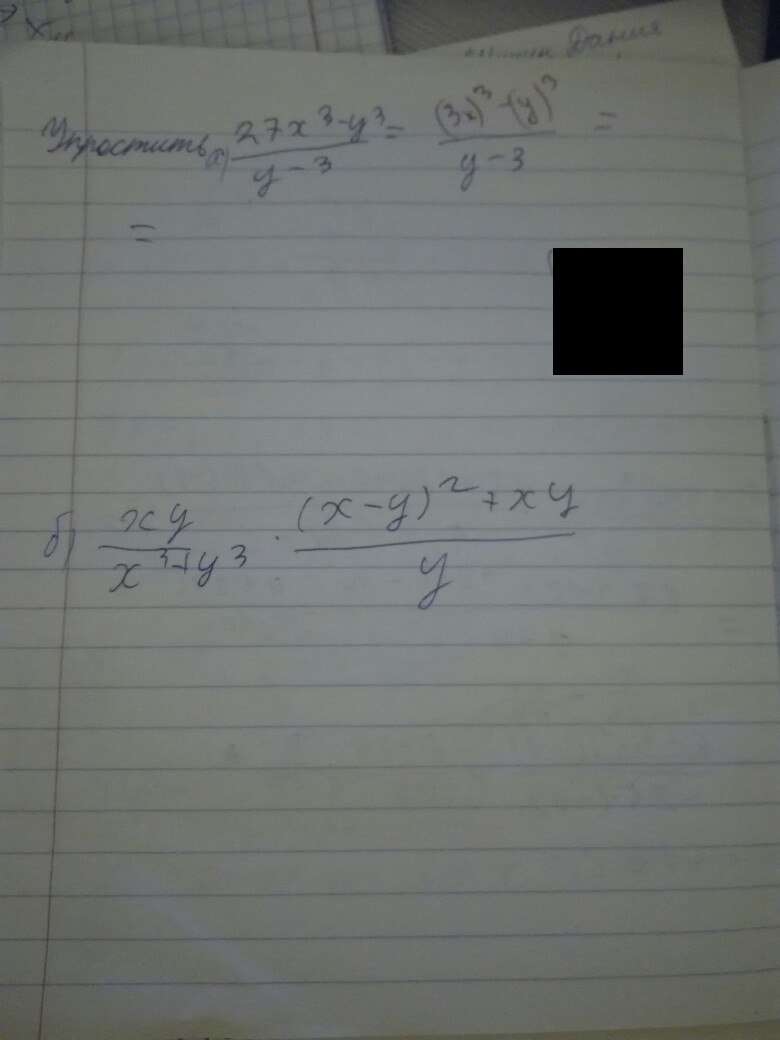 Дания
Упростить а) (27x³-y³)/(y-3) = ((3x)³-(y)³)/(y-3) =
=
б) (xy)/(x³+y³) · ((x-y)²+xy)/y